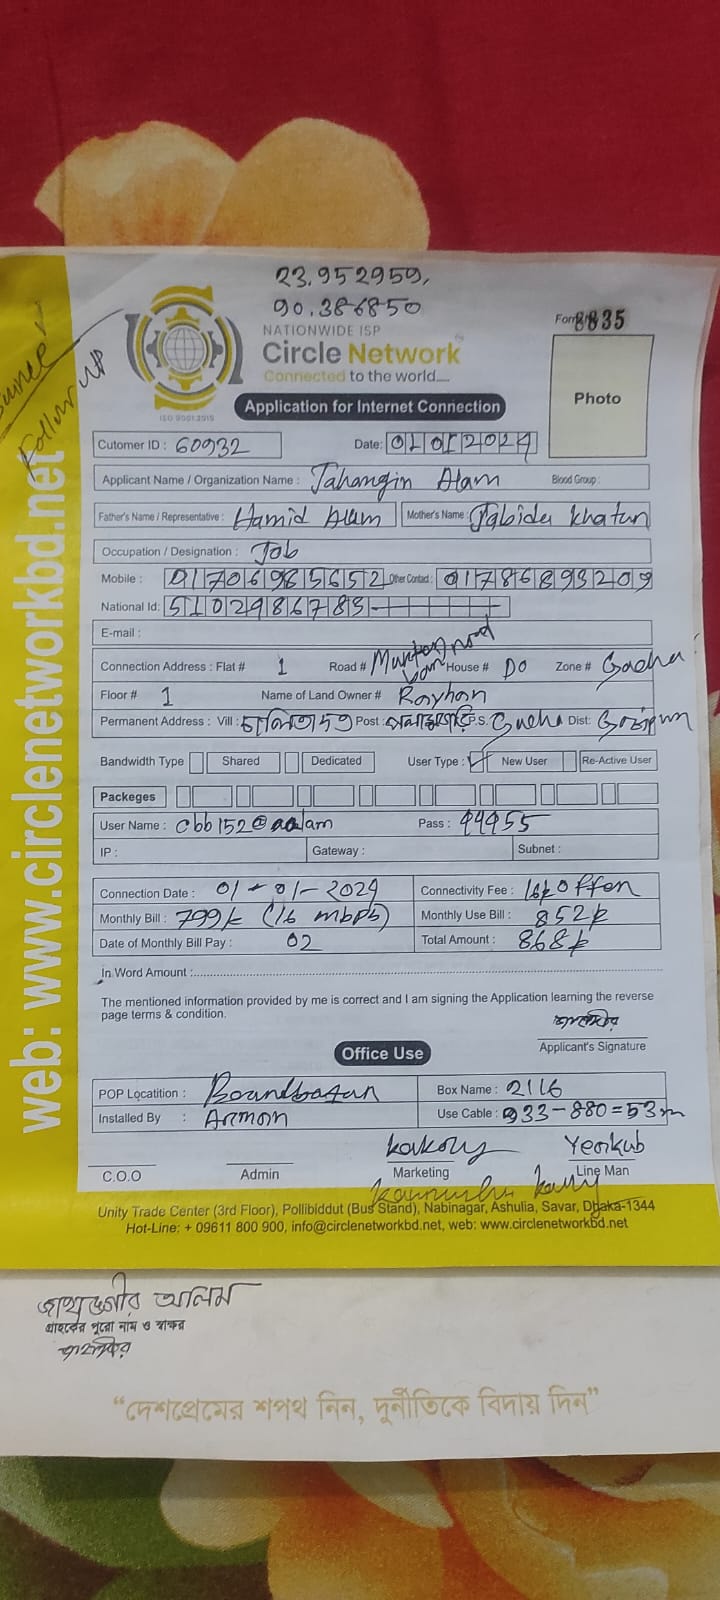 23.952959,
90.386850
NATIONWIDE ISP
Circle Network
Connected to the world....
ISO 9001:2015
8835
Photo
Application for Internet Connection
Follow UP
Cutomer ID : 60932 Date: 01012024
Applicant Name / Organization Name : Jahangir Alam Blood Group:
Father's Name / Representative : Hamid Alam Mother's Name : Jabida Khatun
Occupation / Designation : Job
Mobile : 01706985652 Other Contact : 01786893209
National Id: 5102986783
E-mail :
Connection Address : Flat # 1 Road # road House # DO Zone # Gacha
Floor # 1 Name of Land Owner # Rayhan
Permanent Address : Vill : Post : P.S. Gacha Dist: Gazipur
Bandwidth Type Shared Dedicated User Type : New User Re-Active User
Packeges
User Name : Pass : 44955
IP : Gateway : Subnet :
Connection Date : 01-01-2024 Connectivity Fee : Offer
Monthly Bill : 799৳ (16 mbps) Monthly Use Bill : 852৳
Date of Monthly Bill Pay : 02 Total Amount : 868৳
In Word Amount :
The mentioned information provided by me is correct and I am signing the Application learning the reverse
page terms & condition.
Applicant's Signature
Office Use
POP Locatition : Boardbazar Box Name : 2116
Installed By : Arman Use Cable : 933-880=53m
C.O.O Admin Marketing Line Man
Unity Trade Center (3rd Floor), Pollibiddut (Bus Stand), Nabinagar, Ashulia, Savar, Dhaka-1344
Hot-Line: + 09611 800 900, info@circlenetworkbd.net, web: www.circlenetworkbd.net
web: www.circlenetworkbd.net
জাহাঙ্গীর আলম
গ্রাহকের পুরো নাম ও স্বাক্ষর
জাহাঙ্গীর
“দেশপ্রেমের শপথ নিন, দুর্নীতিকে বিদায় দিন”